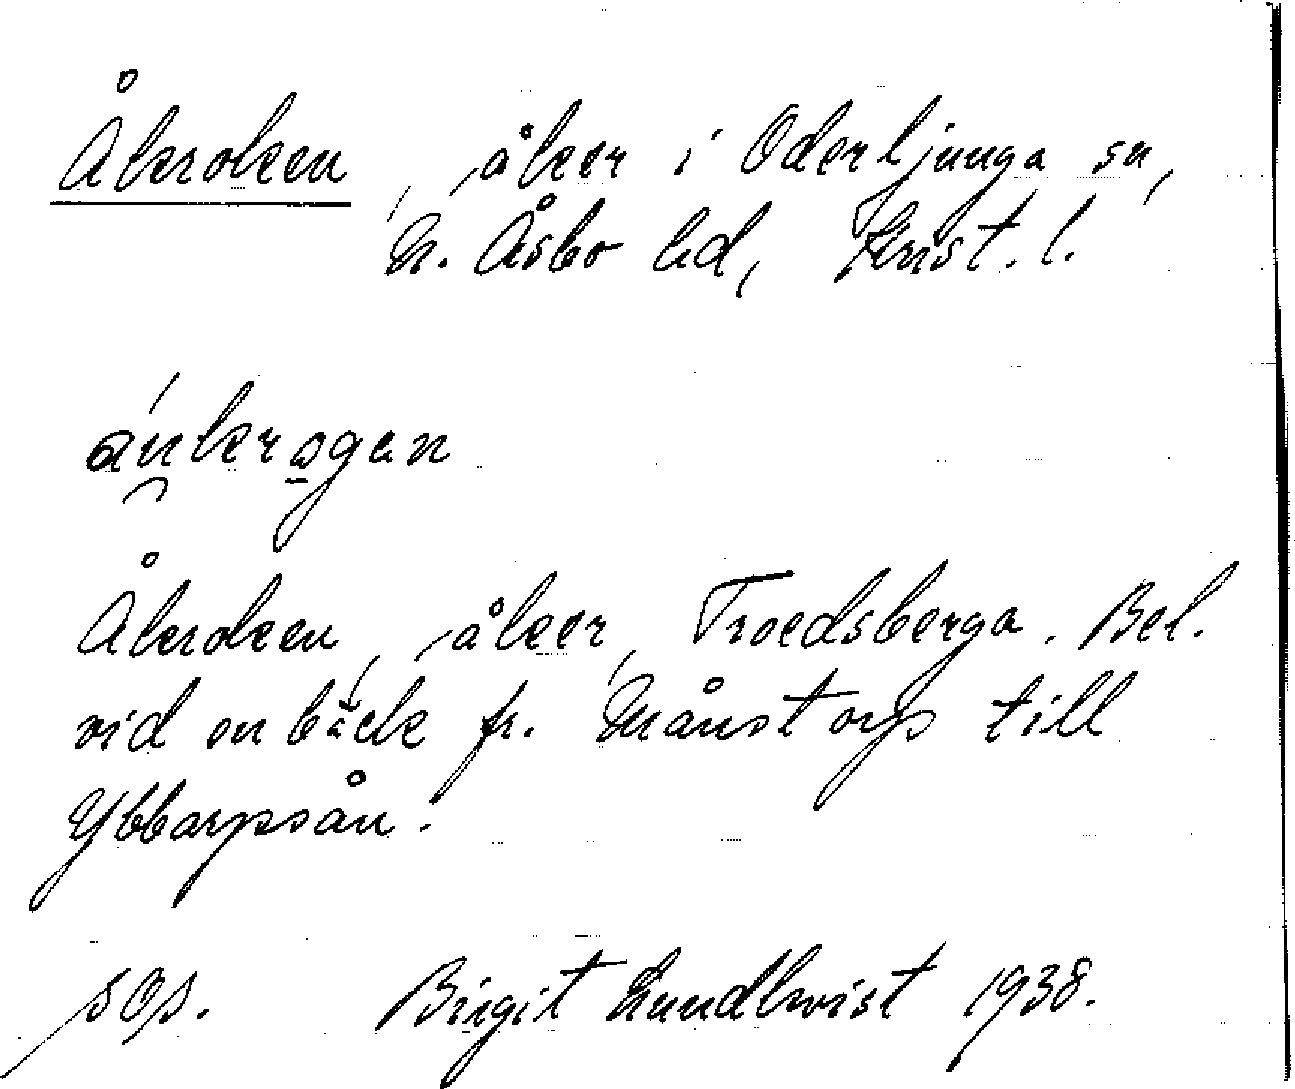 Åkroken, åker i Oderljunga sn,
N. Åsbo hd, Krist. l.
Åkroken, åker, Troedsberga. Bel.
vid en bäck fr. Månstorp till
Ybbarpsån.
sOp. Birgit Lundkvist 1938.